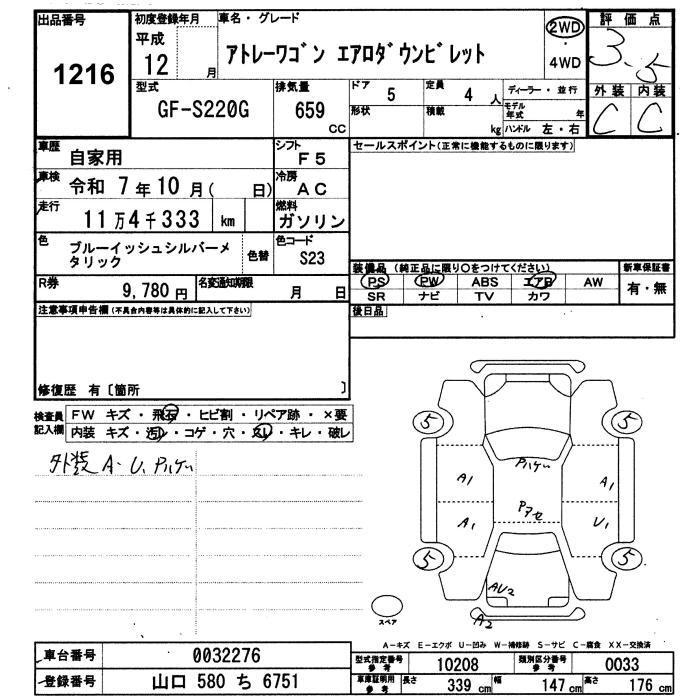 出品番号
1216
初度登録年月
平成
12 月
車名・グレード
アトレーワゴン エアロダウンビレット
2WD
・
4WD
評価点
3.5
外装 内装
C C
型式
GF-S220G
排気量
659
CC
ドア
5
定員
4 人
形状
積載
kg
ディーラー・並行
モデル年式 年
ハンドル 左・右
車歴
自家用
シフト
F5
車検
令和 7年10月( 日)
冷房
AC
走行
11万4千333 km
燃料
ガソリン
色
ブルーイッシュシルバーメ
タリック
色替
色コード
S23
R券
9,780円
名変通知期限
月 日
セールスポイント(正常に機能するものに限ります)
装備品 (純正品に限り○をつけてください)
新車保証書
PS PW ABS エアB AW
有・無
SR ナビ TV カワ
後日品
注意事項申告欄(不具合内容等は具体的に記入して下さい)
修復歴 有〔箇所 〕
検査員
記入欄
FW キズ・飛石・ヒビ割・リペア跡・×要
内装 キズ・汚レ・コゲ・穴・スレ・キレ・破レ
外装 A・U、Pハゲ
5 5
Pハゲ
A1 A1
Pアセ
A1 U1
5 5
AU2
A2
スペア
A-キズ E-エクボ U-凹み W-補修跡 S-サビ C-腐食 XX-交換済
車台番号
0032276
登録番号
山口 580 ち 6751
型式指定番号
参考
10208
類別区分番号
参考
0033
車庫証明用
参考
長さ 339 cm 幅 147 cm 高さ 176 cm